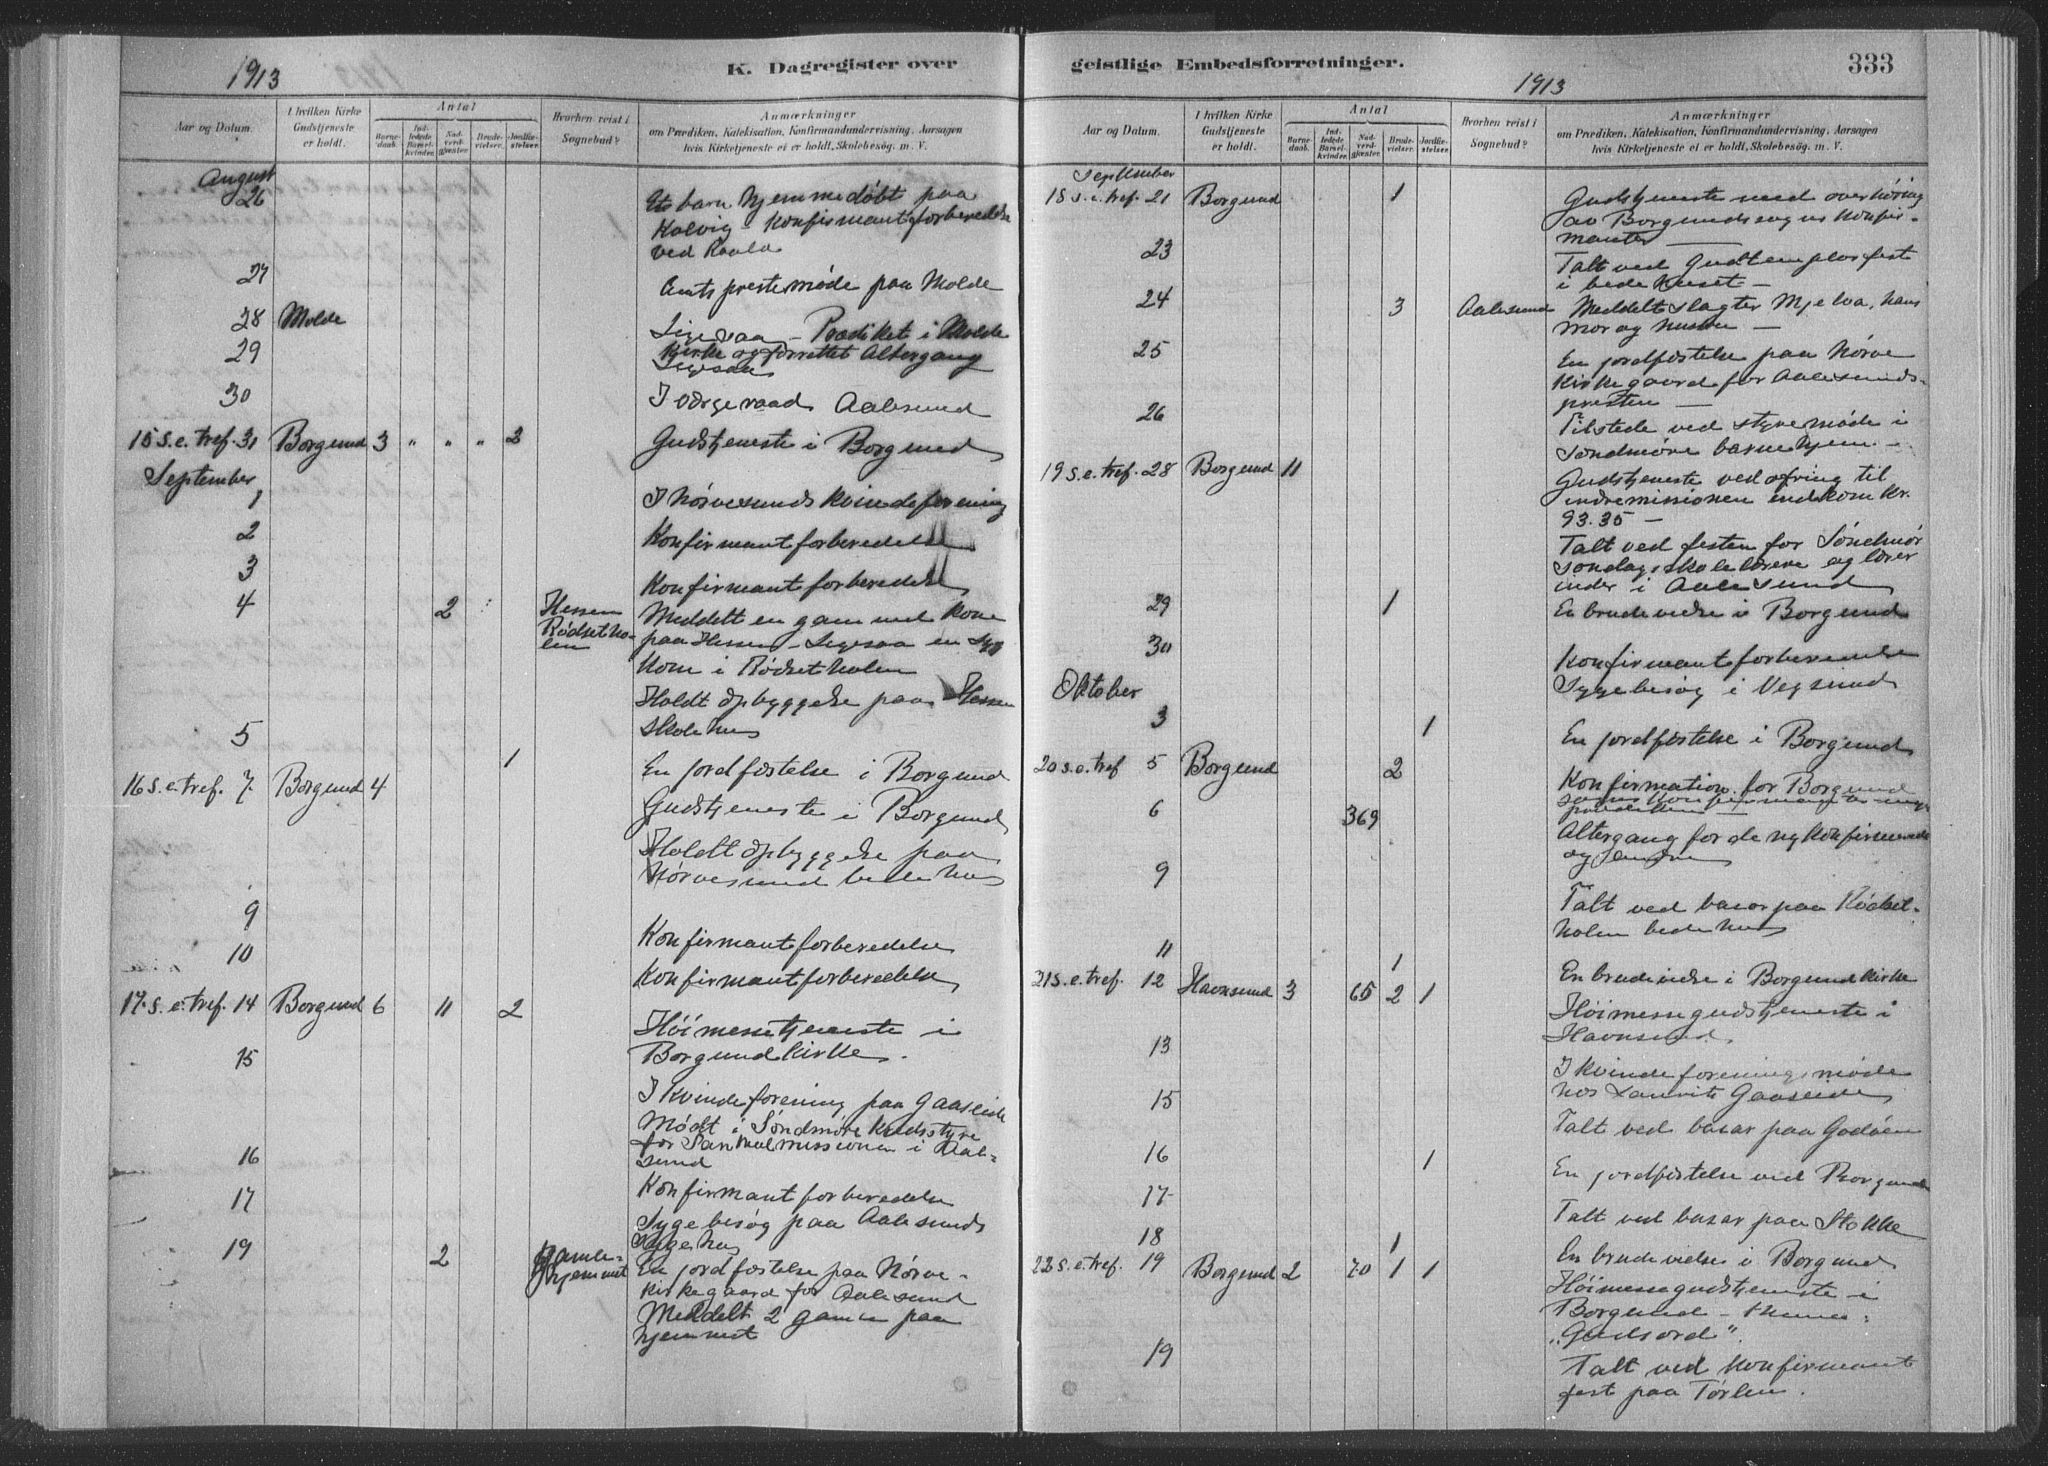 1913
K. Dagregister over
Aar og Datum.
I hvilken Kirke Gudstjeneste er holdt.
Antal
Barnedaab.
Indledede Barselkvinder.
Nadverdgjester
Brudevielser.
Jordfæstelser.
Hvorhen reist i Sognebud?
Anmærkninger
om Prædiken, Katekisation, Konfirmandundervisning, Aarsagen
hvis Kirketjeneste ei er holdt, Skolebesög. m. V.
August
26 barn hjemmedøbt paa
Kalvig - Konfirmantforberedelse
ved
27 Amts prestemøde paa Molde
28 Molde Ligesaa - Prædiket i Molde
Kirke og forrettet Altergang
29 Ligesaa
30 I værgeraad Aalesund
15 S. e. tref. 31 Borgund 3 " " " 2 Gudstjeneste i Borgund
September
1 I Nørvesunds kvindeforening
2 Konfirmantforberedelse
3 Konfirmantforberedelse
4 2 Hessen Meddelt en gammel kone
Rødsetho- paa Hessen - Ligesaa en syg
len kone i Rødsetholen
Holdt Opbyggelse paa Hessen
skolehus
5 1 En jordfæstelse i Borgund
16 S. e. tref. 7. Borgund 4 Gudstjeneste i Borgund
Holdt Opbyggelse paa
Nørvesund bedehus
9 Konfirmantforberedelse
10 Konfirmantforberedelse
17. S. e. tref. 14 Borgund 6 11 2 Høimessetjeneste i
Borgund Kirke.
15 I Kvindeforening paa Gaaseide
Mødt i Søndmøre Kredsstyre
for Santhalmissionen i Aale-
sund
16 Konfirmantforberedelse
17 Sygebesøg paa Aalesunds
sygehus
19 2 Gamle- En jordfæstelse paa Nørve-
hjemmet kirkegaard for Aalesund
Meddelt 2 gamle paa
hjemmet
geistlige Embedsforretninger.
1913
333
Aar og Datum.
I hvilken Kirke Gudstjeneste er holdt.
Antal
Barnedaab.
Indledede Barselkvinder.
Nadverdgjester
Brudevielser.
Jordfæstelser.
Hvorhen reist i Sognebud?
Anmærkninger
om Prædiken, Katekisation, Konfirmandundervisning, Aarsagen
hvis Kirketjeneste ei er holdt, Skolebesög. m. V.
September
18 s. e. tref. 21 Borgund 1 Gudstjeneste med overhøring
av Borgunds sogns Konfir-
manter
23 Talt ved Godtemplarfest
i bedehuset -
24 3 Aalesund Meddelt slagter Mjelva, hans
mor og hustru -
25 En jordfæstelse paa Nørve
Kirkegaard for Aalesunds-
presten -
26 Tilstede ved styremøde i
Søndmøre barnehjem -
19 s. e. tref. 28 Borgund 11 Gudstjeneste ved ofring til
indremissionen indkom kr.
93.35 -
Talt ved festen for Søndmør
søndagsskolelærere og lærer
inder i Aalesund
29 1 En brudevielse i Borgund
30 Konfirmantforberedelse
Sygebesøg i Vegsund
Oktober
3 1 En jordfæstelse i Borgund
20 s. e. tref 5 Borgund 2 Konfirmation for Borgund
sogns Konfirmanter
6 369 Altergang for de nykonfirmerede
og andre
9 Talt ved basar paa Rødset-
holen bedehus
11 1 En brudevielse i Borgund Kirke
21 s. e. tref. 12 Havnsund 3 65 2 1 Høimessegudstjeneste i
Havnsund.
13 I Kvindeforeningsmøde
hos Laurits Gaaseide
15 Talt ved basar paa Godøen
16 1 En jordfæstelse ved Borgund
17 Talt ved basar paa Stokke
18 1 En brudevielse i Borgund
22 s. e. tref. 19 Borgund 2 70 1 1 Høimessegudstjeneste i
Borgund - thema:
"Gudsord".
19 Talt ved Konfirmant
fest paa Tørlen.